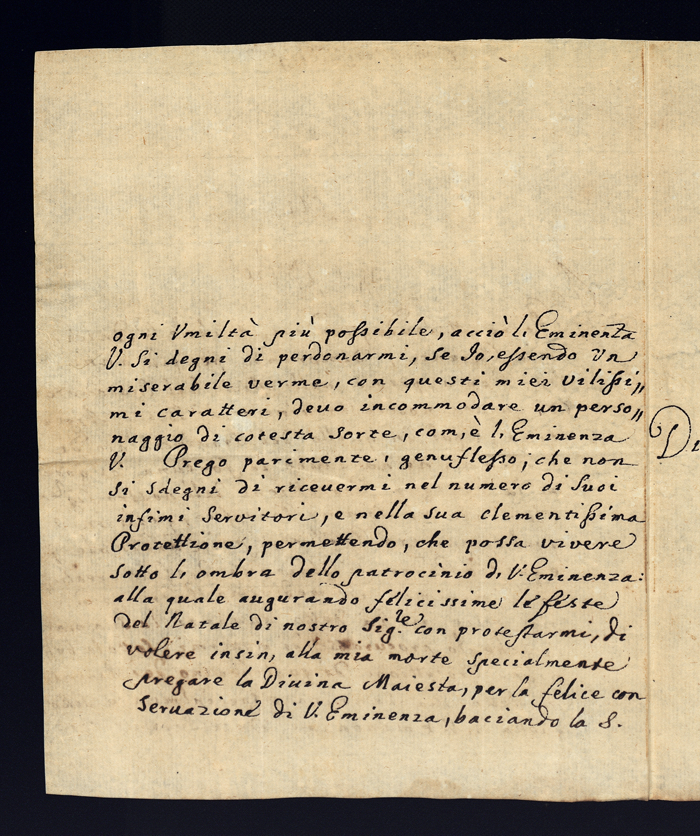 ogni Vmiltà più possibile, acciò l, Eminenza
V. Si degni di perdonarmi, Se Io, essendo Vn
miserabile verme, con questi miei vilissi,,
mi caratteri, deuo incommodare un perso,,
naggio di cotesta sorte, com, è l, Eminenza
V. Prego parimente, genuflesso, che non
Si sdegni di riceuermi nel numero di Suoi
infimi Servitori, e nella sua clementissima
Protettione, permettendo, che possa vivere
Sotto l, ombra dello patrocinio di V. Eminenza:
alla quale augurando felicissime le feste
del Natale di nostro Sig.re con protestarmi, di
volere insin, alla mia morte specialmente
pregare la Diuina Maiesta, per la felice con
Seruazione di V. Eminenza, baciando la S.